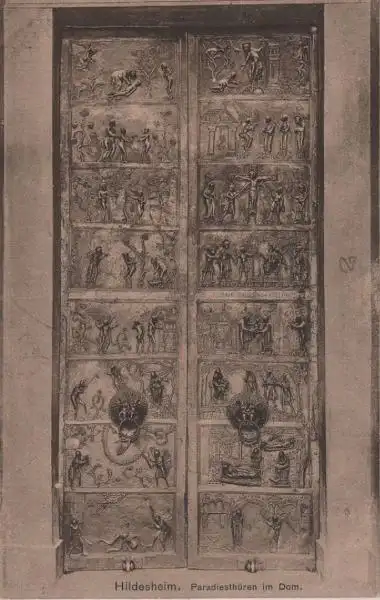 Hildesheim. Paradiesthüren im Dom.